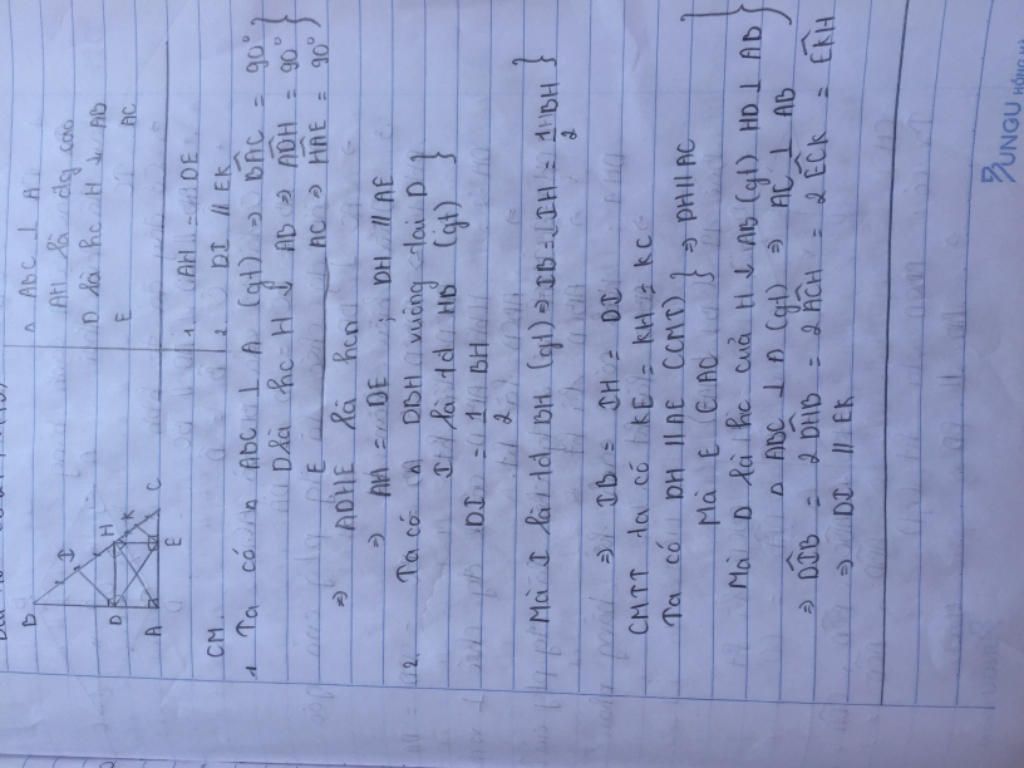 B
D
I
H
K
A
E
C
Δ ABC ⊥ A
AH là đg cao
D là hc H ↓ AB
E AC
1 AH = DE
2 DI // EK
CM.
1 Ta có Δ ABC ⊥ A (gt) => BÂC = 90°
D là hc H ↓ AB => ADH = 90°
E AC => HAE = 90°
=> ADHE là hcn
=> AA = DE ; DH // AE
2 Ta có Δ DBH vuông tại D
I là td HB (gt)
DI = 1/2 BH
Mà I là td BH (gt) => IB = IH = 1/2 BH
=> IB = IH = DI
CMTT ta có KE = KH = KC
Ta có DH // AE (CMT)
Mà E ∈ AC => DH // AC
Mà D là hc của H ↓ AB (gt) HD ⊥ AB
Δ ABC ⊥ A (gt) => AC ⊥ AB
=> DIB = 2 DHB = 2 ACH = 2 ECK = EKH
=> DI // EK